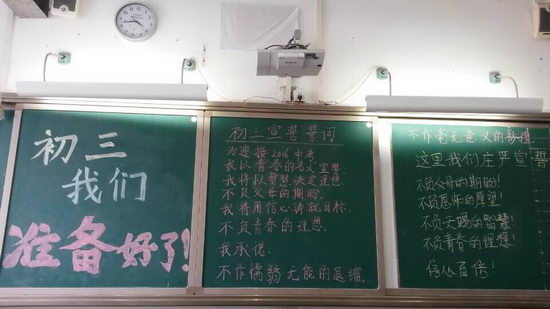 初三
我们
准备好了!
初三宣誓誓词
为迎接2016中考
我以青春的名义宣誓
我将以智慧决定理想.
不负父母的期盼.
我将用信心铸就目标.
不负青春的理想.
我承诺:
不作懦弱无能的退缩.
不作毫无意义的彷徨.
这里我们庄严宣誓
不负父母的期盼!
不负恩师的厚望!
不负天赐的智慧!
不负青春的理想!
信心百倍!